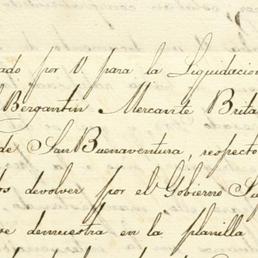 ado por V. para la Liquidacion
Bergantin Mercante Brita
de San Buenaventura, respecto
devolver por el Gobierno Su
demuestra en la planilla